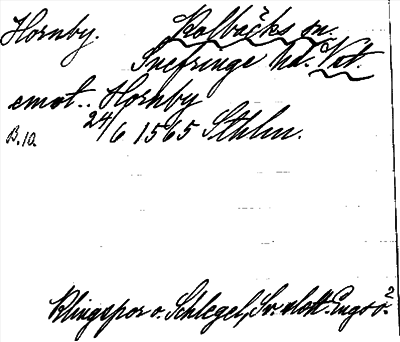 Hornby. Kolbäcks sn.
Snefringe hd. Vstm.
omot.. Hornby
24/6 1565 Sthlm.
B.10
Klingspor o. Schlegel, Sv. slott. Engsö.²